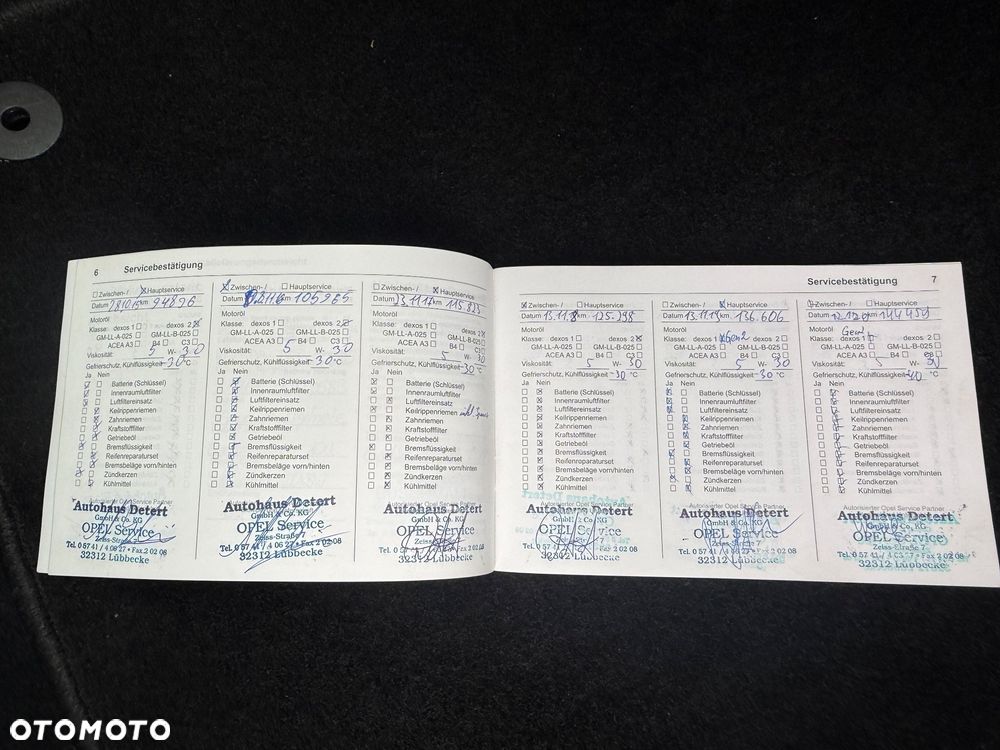 6 Servicebestätigung
Zwischen- / Hauptservice
Datum km 94896
Motoröl
Klasse: dexos 1 dexos 2
GM-LL-A-025 GM-LL-B-025
ACEA A3 B4 C3
Viskosität: 5 W- 30
Gefrierschutz, Kühlflüssigkeit -30 °C
Ja Nein
Batterie (Schlüssel)
Innenraumluftfilter
Luftfiltereinsatz
Keilrippenriemen
Zahnriemen
Kraftstofffilter
Getriebeöl
Bremsflüssigkeit
Reifenreparaturset
Bremsbeläge vorn/hinten
Zündkerzen
Kühlmittel
Autorisierter Opel Service Partner
Autohaus Detert
GmbH & Co. KG
OPEL Service
Zeiss-Straße 7
Tel. 0 57 41 / 4 06 27 • Fax 2 02 08
32312 Lübbecke
Zwischen- / Hauptservice
Datum km 105965
Motoröl
Klasse: dexos 1 dexos 2
GM-LL-A-025 GM-LL-B-025
ACEA A3 B4 C3
Viskosität: 5 W- 30
Gefrierschutz, Kühlflüssigkeit -30 °C
Ja Nein
Batterie (Schlüssel)
Innenraumluftfilter
Luftfiltereinsatz
Keilrippenriemen
Zahnriemen
Kraftstofffilter
Getriebeöl
Bremsflüssigkeit
Reifenreparaturset
Bremsbeläge vorn/hinten
Zündkerzen
Kühlmittel
Autorisierter Opel Service Partner
Autohaus Detert
GmbH & Co. KG
OPEL Service
Zeiss-Straße 7
Tel. 0 57 41 / 4 06 27 • Fax 2 02 08
32312 Lübbecke
Zwischen- / Hauptservice
Datum 13.11.17 km 115.823
Motoröl
Klasse: dexos 1 dexos 2
GM-LL-A-025 GM-LL-B-025
ACEA A3 B4 C3
Viskosität: 5 W- 30
Gefrierschutz, Kühlflüssigkeit -30 °C
Ja Nein
Batterie (Schlüssel)
Innenraumluftfilter
Luftfiltereinsatz
Keilrippenriemen
Zahnriemen
Kraftstofffilter
Getriebeöl
Bremsflüssigkeit
Reifenreparaturset
Bremsbeläge vorn/hinten
Zündkerzen
Kühlmittel
Autorisierter Opel Service Partner
Autohaus Detert
GmbH & Co. KG
OPEL Service
Zeiss-Straße 7
Tel. 0 57 41 / 4 06 27 • Fax 2 02 08
32312 Lübbecke
Servicebestätigung 7
Zwischen- / Hauptservice
Datum 13.11.18 km 125.398
Motoröl
Klasse: dexos 1 dexos 2
GM-LL-A-025 GM-LL-B-025
ACEA A3 B4 C3
Viskosität: 5 W- 30
Gefrierschutz, Kühlflüssigkeit -30 °C
Ja Nein
Batterie (Schlüssel)
Innenraumluftfilter
Luftfiltereinsatz
Keilrippenriemen
Zahnriemen
Kraftstofffilter
Getriebeöl
Bremsflüssigkeit
Reifenreparaturset
Bremsbeläge vorn/hinten
Zündkerzen
Kühlmittel
Autorisierter Opel Service Partner
Autohaus Detert
GmbH & Co. KG
OPEL Service
Zeiss-Straße 7
Tel. 0 57 41 / 4 06 27 • Fax 2 02 08
32312 Lübbecke
Zwischen- / Hauptservice
Datum 13.11.19 km 136.606
Motoröl
Klasse: dexos 1 Gen2 dexos 2
GM-LL-A-025 GM-LL-B-025
ACEA A3 B4 C3
Viskosität: 5 W- 30
Gefrierschutz, Kühlflüssigkeit -30 °C
Ja Nein
Batterie (Schlüssel)
Innenraumluftfilter
Luftfiltereinsatz
Keilrippenriemen
Zahnriemen
Kraftstofffilter
Getriebeöl
Bremsflüssigkeit
Reifenreparaturset
Bremsbeläge vorn/hinten
Zündkerzen
Kühlmittel
Autorisierter Opel Service Partner
Autohaus Detert
GmbH & Co. KG
OPEL Service
Zeiss-Straße 7
Tel. 0 57 41 / 4 06 27 • Fax 2 02 08
32312 Lübbecke
Zwischen- / Hauptservice
Datum km 144459
Motoröl
Klasse: dexos 1 dexos 2
GM-LL-A-025 GM-LL-B-025
ACEA A3 B4 C3
Viskosität: 5 W- 30
Gefrierschutz, Kühlflüssigkeit -40 °C
Ja Nein
Batterie (Schlüssel)
Innenraumluftfilter
Luftfiltereinsatz
Keilrippenriemen
Zahnriemen
Kraftstofffilter
Getriebeöl
Bremsflüssigkeit
Reifenreparaturset
Bremsbeläge vorn/hinten
Zündkerzen
Kühlmittel
Autorisierter Opel Service Partner
Autohaus Detert
GmbH & Co. KG
OPEL Service
Zeiss-Straße 7
Tel. 0 57 41 / 4 06 27 • Fax 2 02 08
32312 Lübbecke
OTOMOTO